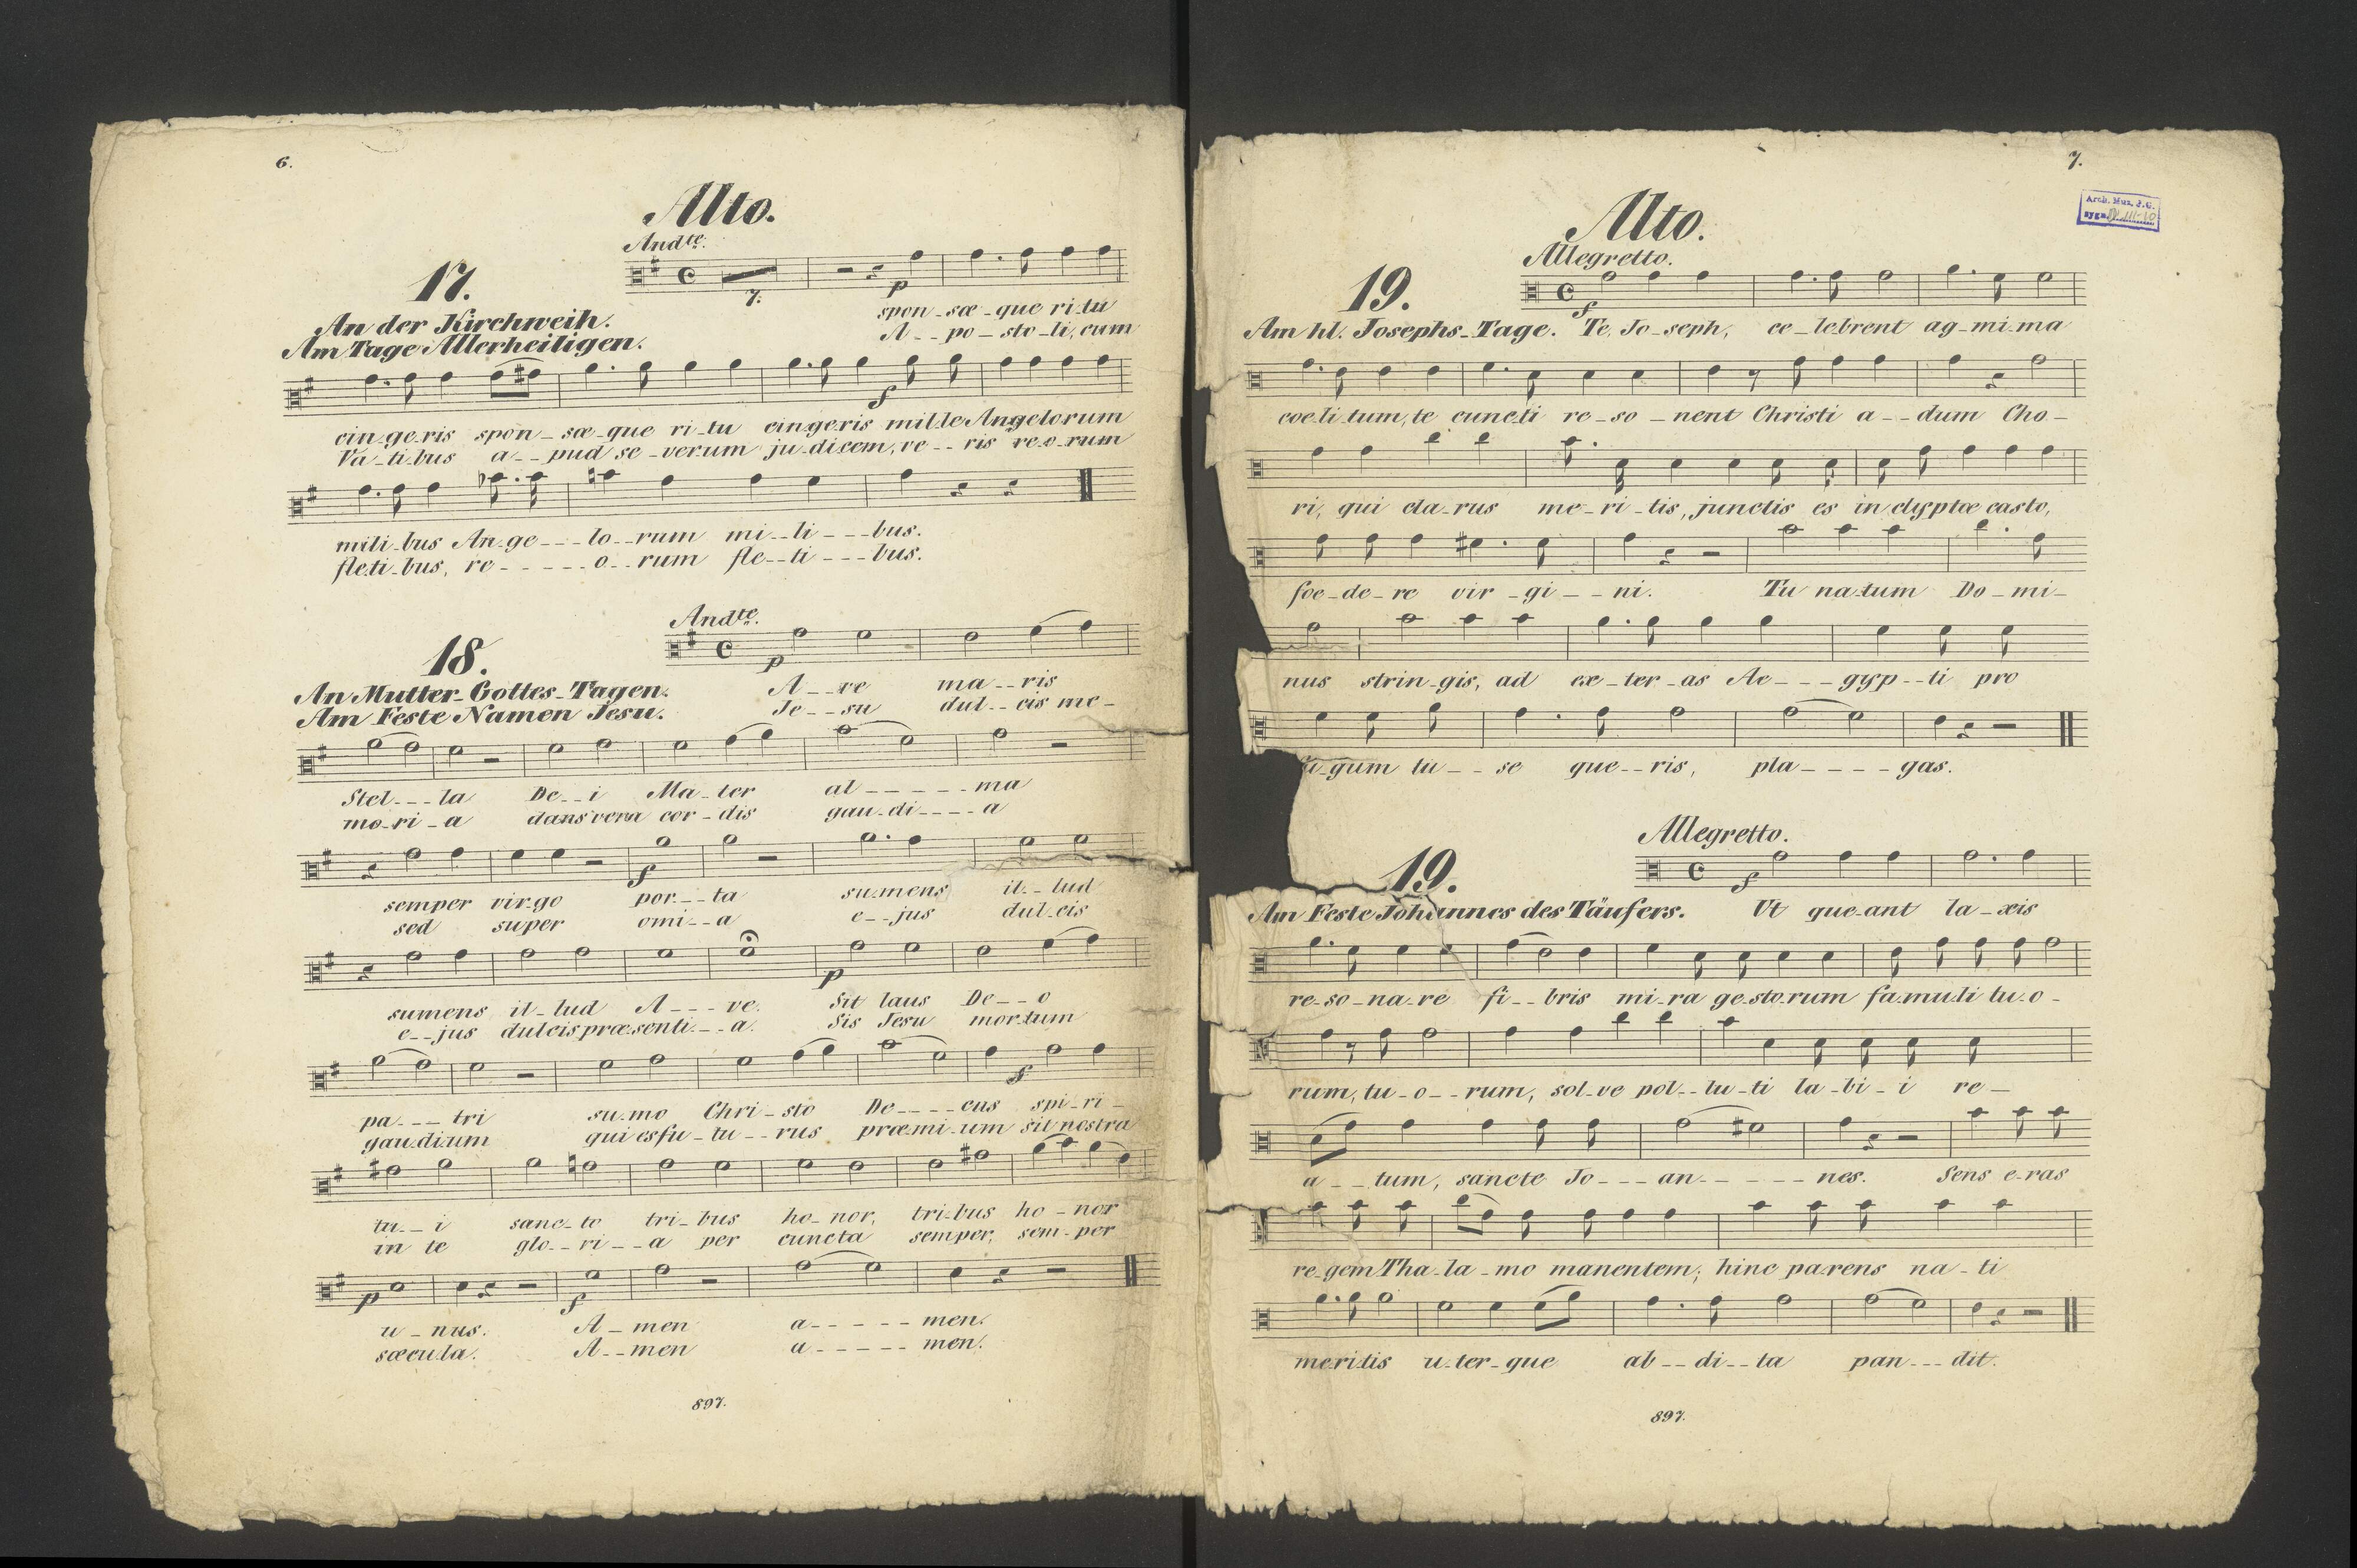 6.
Alto.
Andte.
17.
7.
p
spon_sœ_que ri_tu
An der Kirchweih.
A__po_sto_li, cum
Am Tage Allerheiligen.
f
cin_ge_ris spon_sœ_que ri_tu cingeris mille Angelorum
Va_ti_bus a__pud se_verum ju_dicem, ve__ris re_o_rum
mili_bus An_ge___lo__rum mi__li___bus.
fleti_bus, re_____o__rum fle__ti___bus.
Andte.
18.
p
An Mutter_Gottes_Tagen.
A__ve ma__ris
Am Feste Namen Jesu.
Je__su dul__cis me_
Stel___la De__i Ma_ter al_____ma
mo_ri_a dans vera cor_dis gau_di____a
f
semper vir_go por___ta sumens il__lud
sed super omi__a e__jus dul_cis
p
sumens il_lud A___ve. Sit laus De__o
e__jus dulcis præsenti___a. Sis Jesu mor_tum
f
pa___tri su_mo Chri_sto De____cus spi_ri_
gaudium qui es fu_tu__rus præmi_um sit nostra
tu__i sanc_to tri_bus ho_nor, tri_bus ho_nor
in te glo__ri__a per cuncta semper, sem_per
p
f
u_nus. A_men a_____men.
sœcula. A__men a_____men.
897.
7.
Arch. Muz. J.G.
sygn.
Alto.
Allegretto.
19.
f
Am hl. Josephs_Tage. Te, Jo_seph, ce_lebrent ag_mi_ma
coe_li_tum, te cuncti re_so_nent Christi a__dum Cho_
ri, qui cla_rus me_ri_tis, junctis es in clyptœ casto,
foe_de_re vir_gi__ni. Tu natum Do_mi_
nus strin_gis, ad ex_ter_as Ae___gyp__ti pro
gum tu__se que__ris, pla____gas.
Allegretto.
19.
f
Am Feste Johannes des Täufers. Ut que_ant la_xis
re_so_na_re fi__bris mi_ra ge_sto_rum fa_mu_li tu_o_
rum, tu_o__rum, sol_ve pol__lu_ti la_bi_i re_
a__tum, sancte Jo___an_____nes. Sens e_ras
re_gem Tha_la_mo manentem; hinc parens na_ti
meritis u_ter_que ab__di__ta pan___dit.
897.